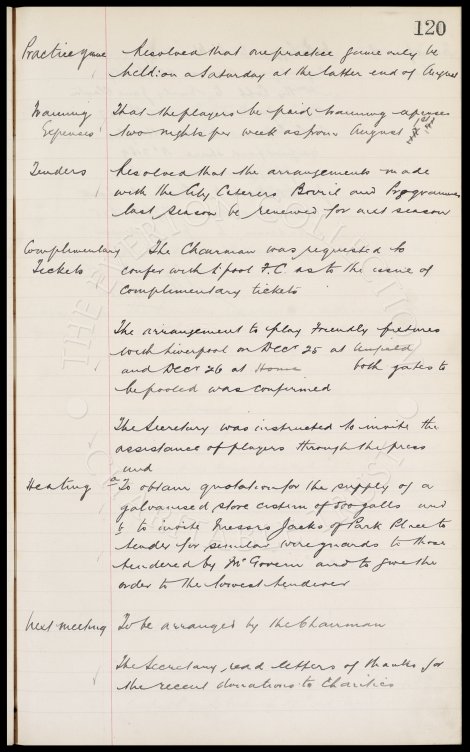 120
Practice game Resolved that one practice game only be
held on a Saturday at the latter end of August
Training Expenses That the players be paid training expenses
two nights per week as from August 1st
Tenders Resolved that the arrangements made
with the City Caterers Bovril and Programmes
last season be renewed for next season
Complimentary Tickets The Chairman was requested to
confer with L'pool F.C. as to the issue of
complimentary tickets
The arrangement to play Friendly fixtures
with Liverpool on Decr 25 at Anfield
and Decr 26 at Home both gates to
be pooled was confirmed
The Secretary was instructed to invite the
assistance of players through the press
and
Heating a To obtain quotation for the supply of a
galvanised store cistern of 500 galls and
b to invite Messrs Jacks of Park Place to
tender for similar wire guards to those
tendered by McGovern and to give the
order to the lowest tenderer
Next meeting To be arranged by the Chairman
The Secretary read letters of thanks for
the recent donations to Charities
THE EVERTON COLLECTION